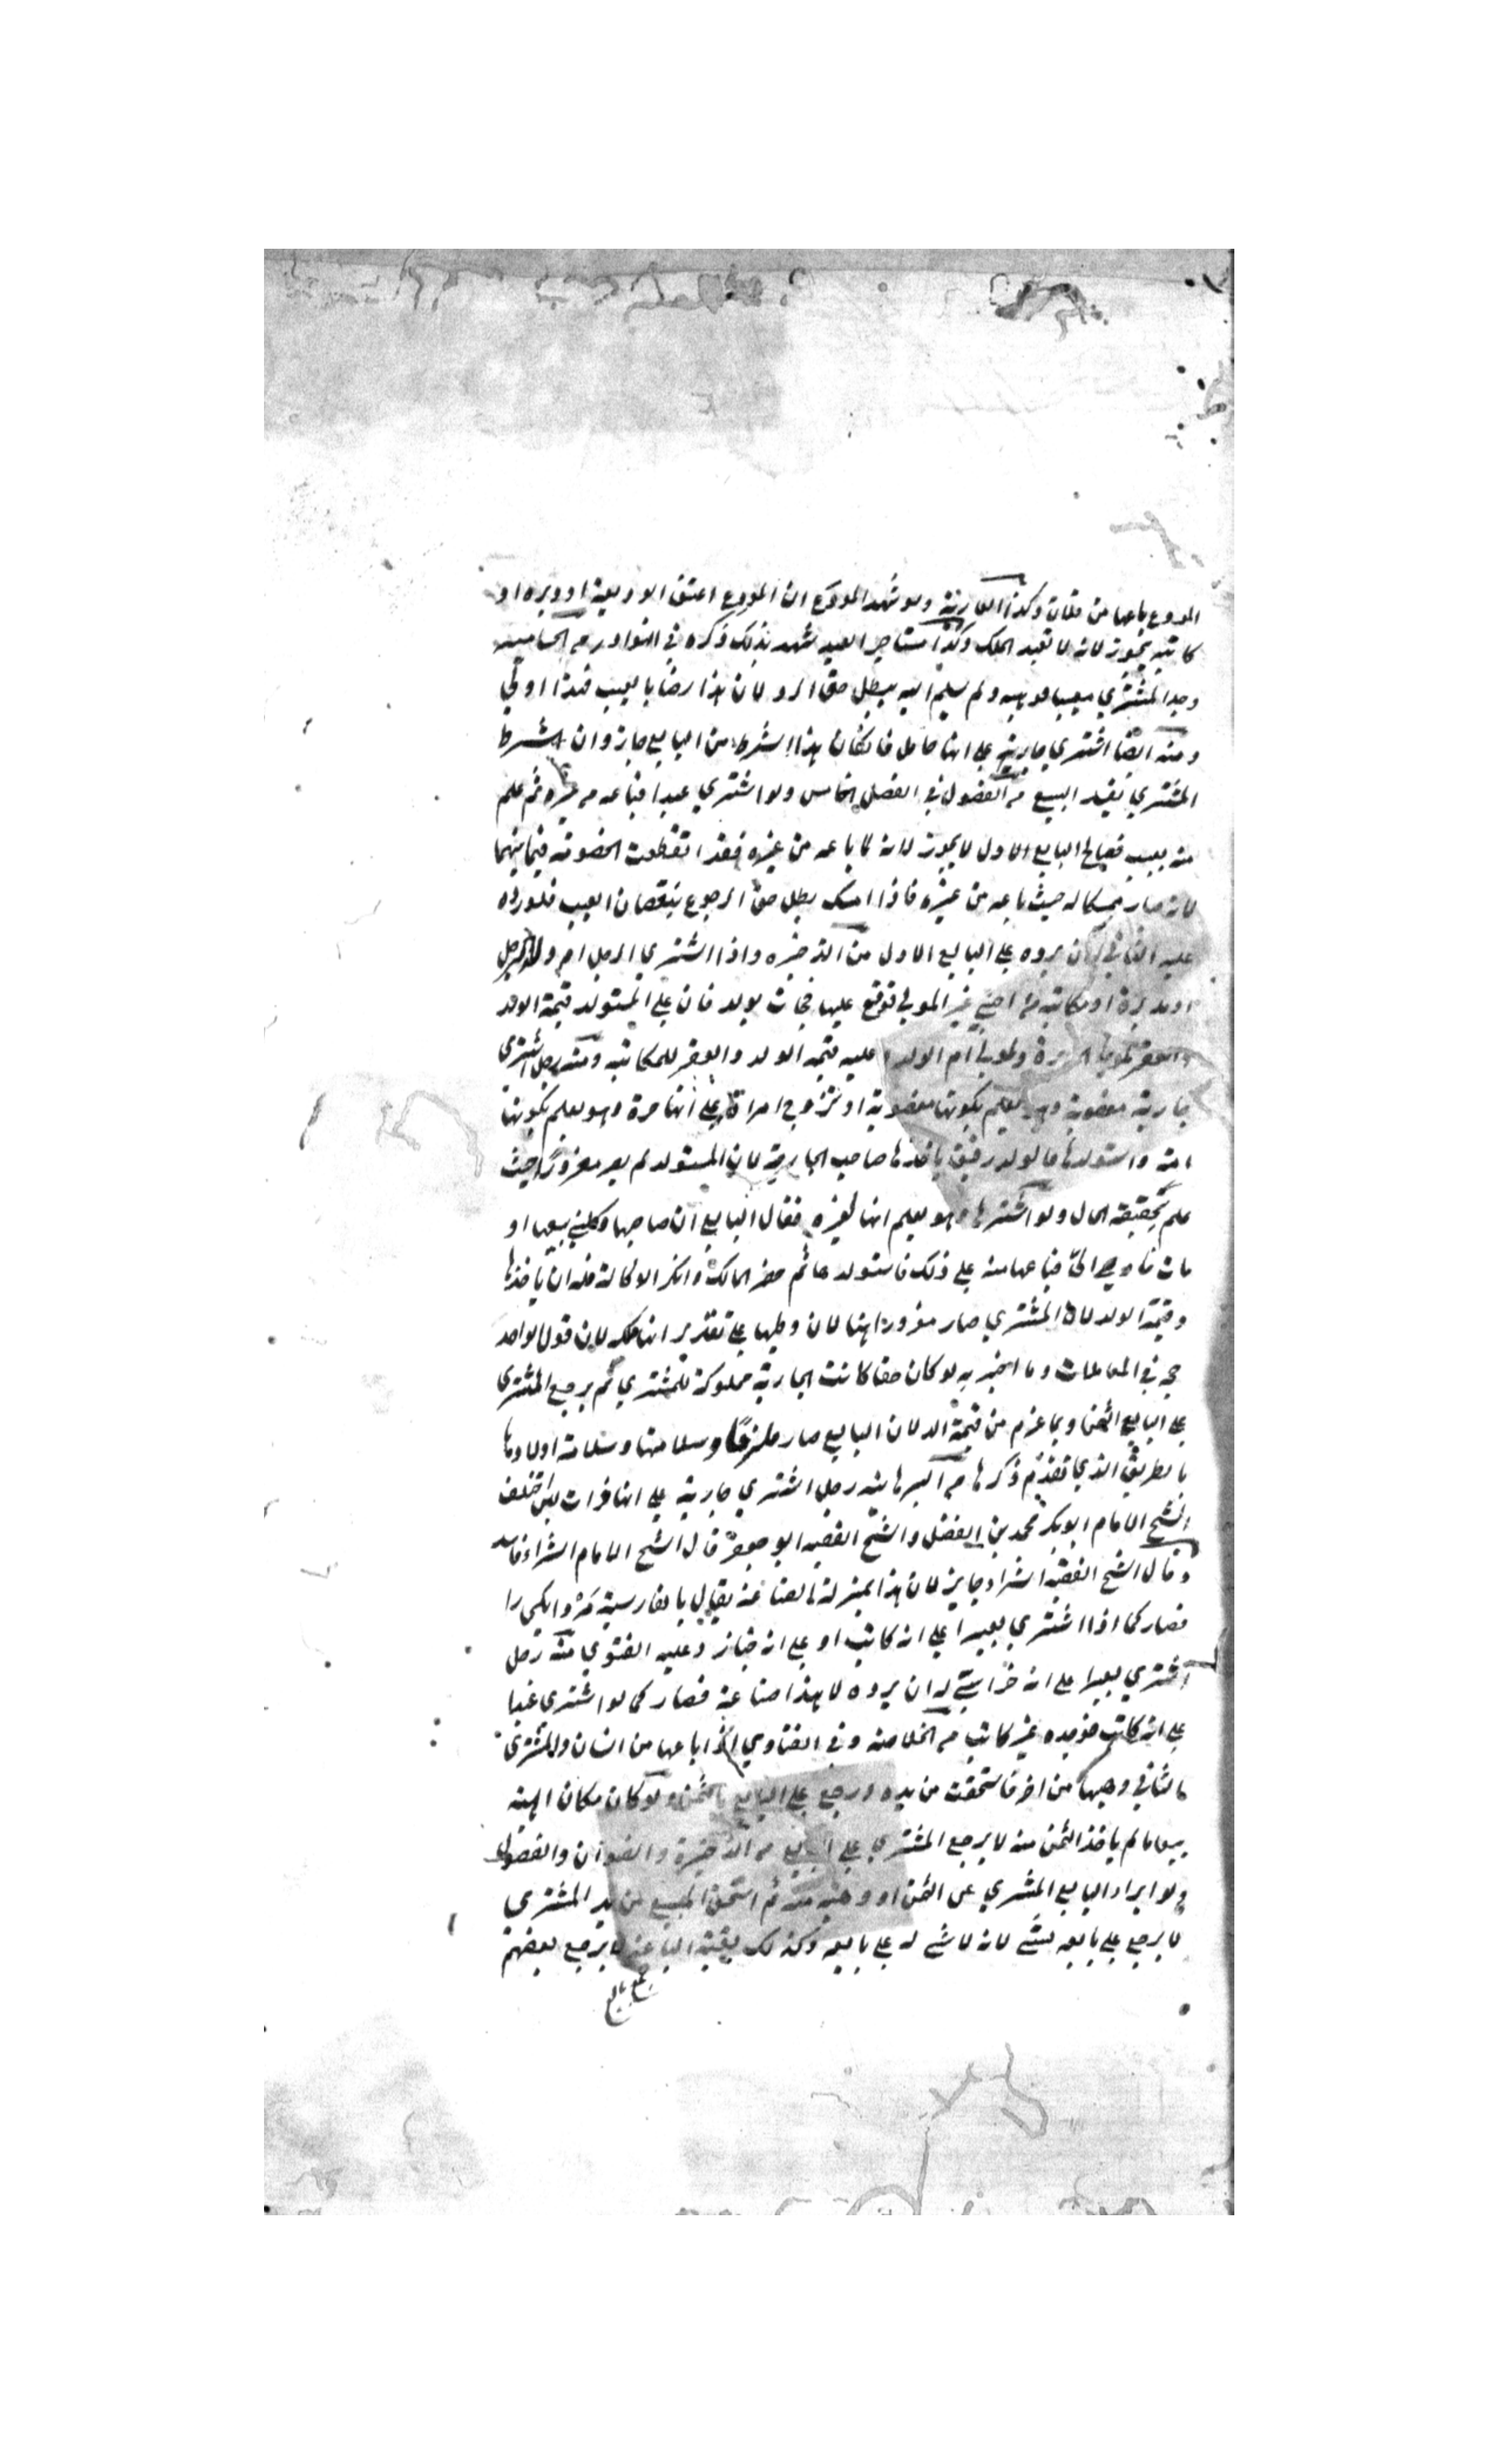 المودع باعها من فلان وكذا العارية ولو شهد المودَع ان المودِع اعتق الوديعة او دبره او
كاتبه يجوز لانه لا تفيد الملك وكذا مستاجر العبد شهد بذلك ذكره في النوادر من الحاميه
وجد المشتري معيبا فوهبه ولم يسلم اليه يبطل حق الرد لان هذا رضا بالعيب فهذا اولي
ومنه ايضا اشتري جارية علي انها حامل فان كان هذا الشرط من البايع جاز وان شرط
المشتري يفسد البيع من الفصول في الفصل الخامس ولو اشتري عبدا فباعه من غيره ثم علم
منه بعيب فصالح البايع الاول لا يجوز لانه لما باعه من غيره فقد انقطعت الخصومة فيما بينهما
لانه صار ممسكا له حيث باعه من غيره فاذا امسك بطل حق الرجوع بنقصان العيب فلو رده
عليه الثاني كان يرده علي البايع الاول من الذخيره واذا اشتري الرجل ام ولد لرجل
او مدبرة او مكاتبة من اجنبي غير المولي فوقع عليها فجات بولد فان علي المستولد قيمة الولد
والعقر لمولي المدبرة ولمولي ام الولد وعليه قيمة الولد والعقر للمكاتبة ومنه رجل اشتري
جارية مغصوبة وهو يعلم بكونها مغصوبة او تزوج امراة علي انها حرة وهو يعلم بكونها
امة واستولدها فالولد رقيق ياخذها صاحب الجارية لان المستولد لم يصر مغرورا حيث
علم بحقيقة الحال ولو اشتراها وهو يعلم انها لغيره فقال البايع ان صاحبها وكلني ببيعها او
مات فاوصي الي فباعها منه علي ذلك فاستولدها ثم حضر المالك وانكر الوكالة فله ان ياخذها
وقيمة الولد لان المشتري صار مغرورا هنا لان وطيها علي تقدير انها ملكه لان قول الواحد
حجة في المعاملات وما اخبر به لو كان حقا كانت الجارية مملوكة للمشتري ثم يرجع المشتري
علي البايع الثمن وبما غرم من قيمة الولد لان البايع صار ملتزما وسلامتها وسلامة اولادها
بالطريق الذي تقدم ذكرها من رجل اشتري جارية علي انها ذات لبن اختلف
الشيخ الامام ابو بكر محمد بن الفضل والشيخ الفقيه ابو جعفر قال الشيخ الامام الشراء فاسد
وقال الشيخ الفقيه الشراء جايز لان هذا بمنزلة الصناعة يقال بالفارسية را
فصار كما اذا اشتري بعيرا علي انه كاتب او علي انه خباز وعليه الفتوي منه رجل
اشتري بعيرا علي انه له ان يرده لا هذا صناعة فصار كما لو اشتري
علي انه كاتب فوجده غير كاتب من الخلاصة وفي الفتاوي اذا باعها من انسان والمشتري
الثاني وهبها من اخر فاستحقت من يده ورجع علي البايع بالثمن ولو كان مكان الهبة
بيعا ما لم ياخذ الثمن منه لا يرجع المشتري علي البايع من الذخيرة والفصول
ولو ابراء البايع المشري عن الثمن او وهبه منه ثم استحق المبيع من يد المشتري
لا يرجع علي بايعه بشي لانه لا شي له علي بايعه وكذلك بقية الباعة لا يرجع بعضهم